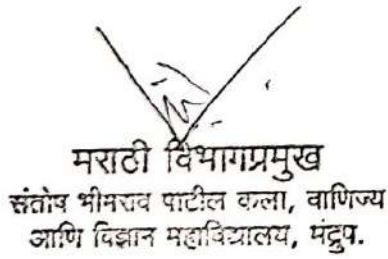 मराठी विभागप्रमुख
संतोष भीमराव पाटील कला, वाणिज्य
आणि विज्ञान महाविद्यालय, मंद्रुप.